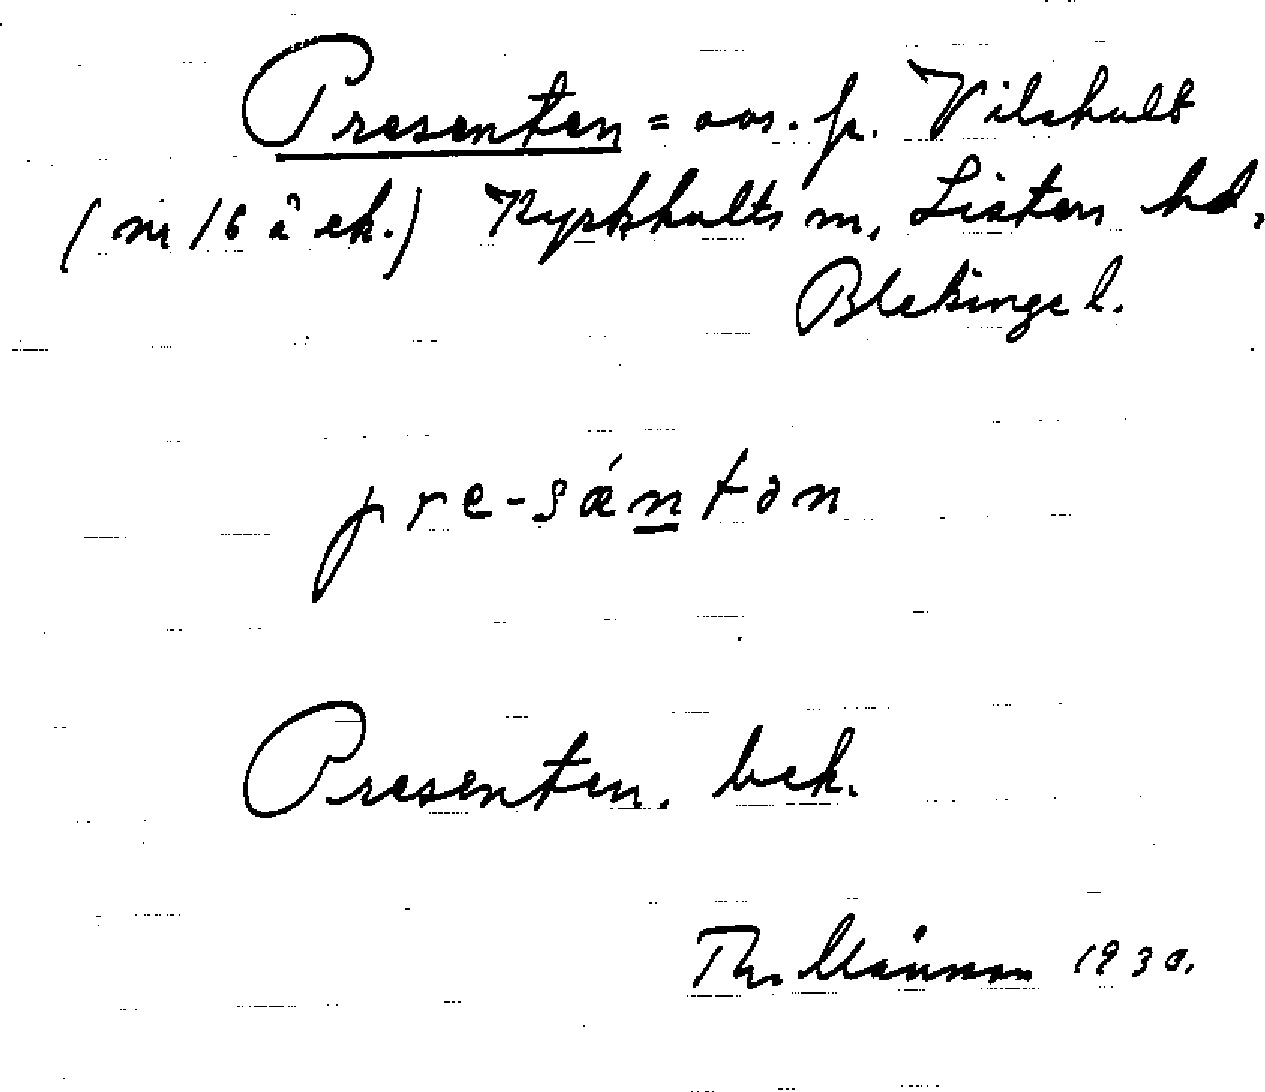 Presenten = oos. fr. Vilshult
(nr 16 å ek.) Kyrkhults sn, Listers hd,
Blekinge l.
pre-sǽntən
Presenten. bek.
1930.